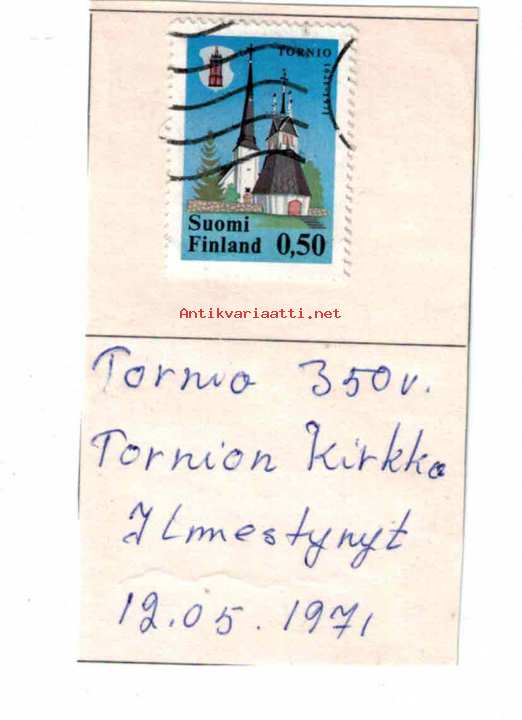 TORNIO
1621-1971
Suomi
Finland 0,50
Antikvariaatti.net
Tornio 350v.
Tornion Kirkko
Ilmestynyt
12.05.1971